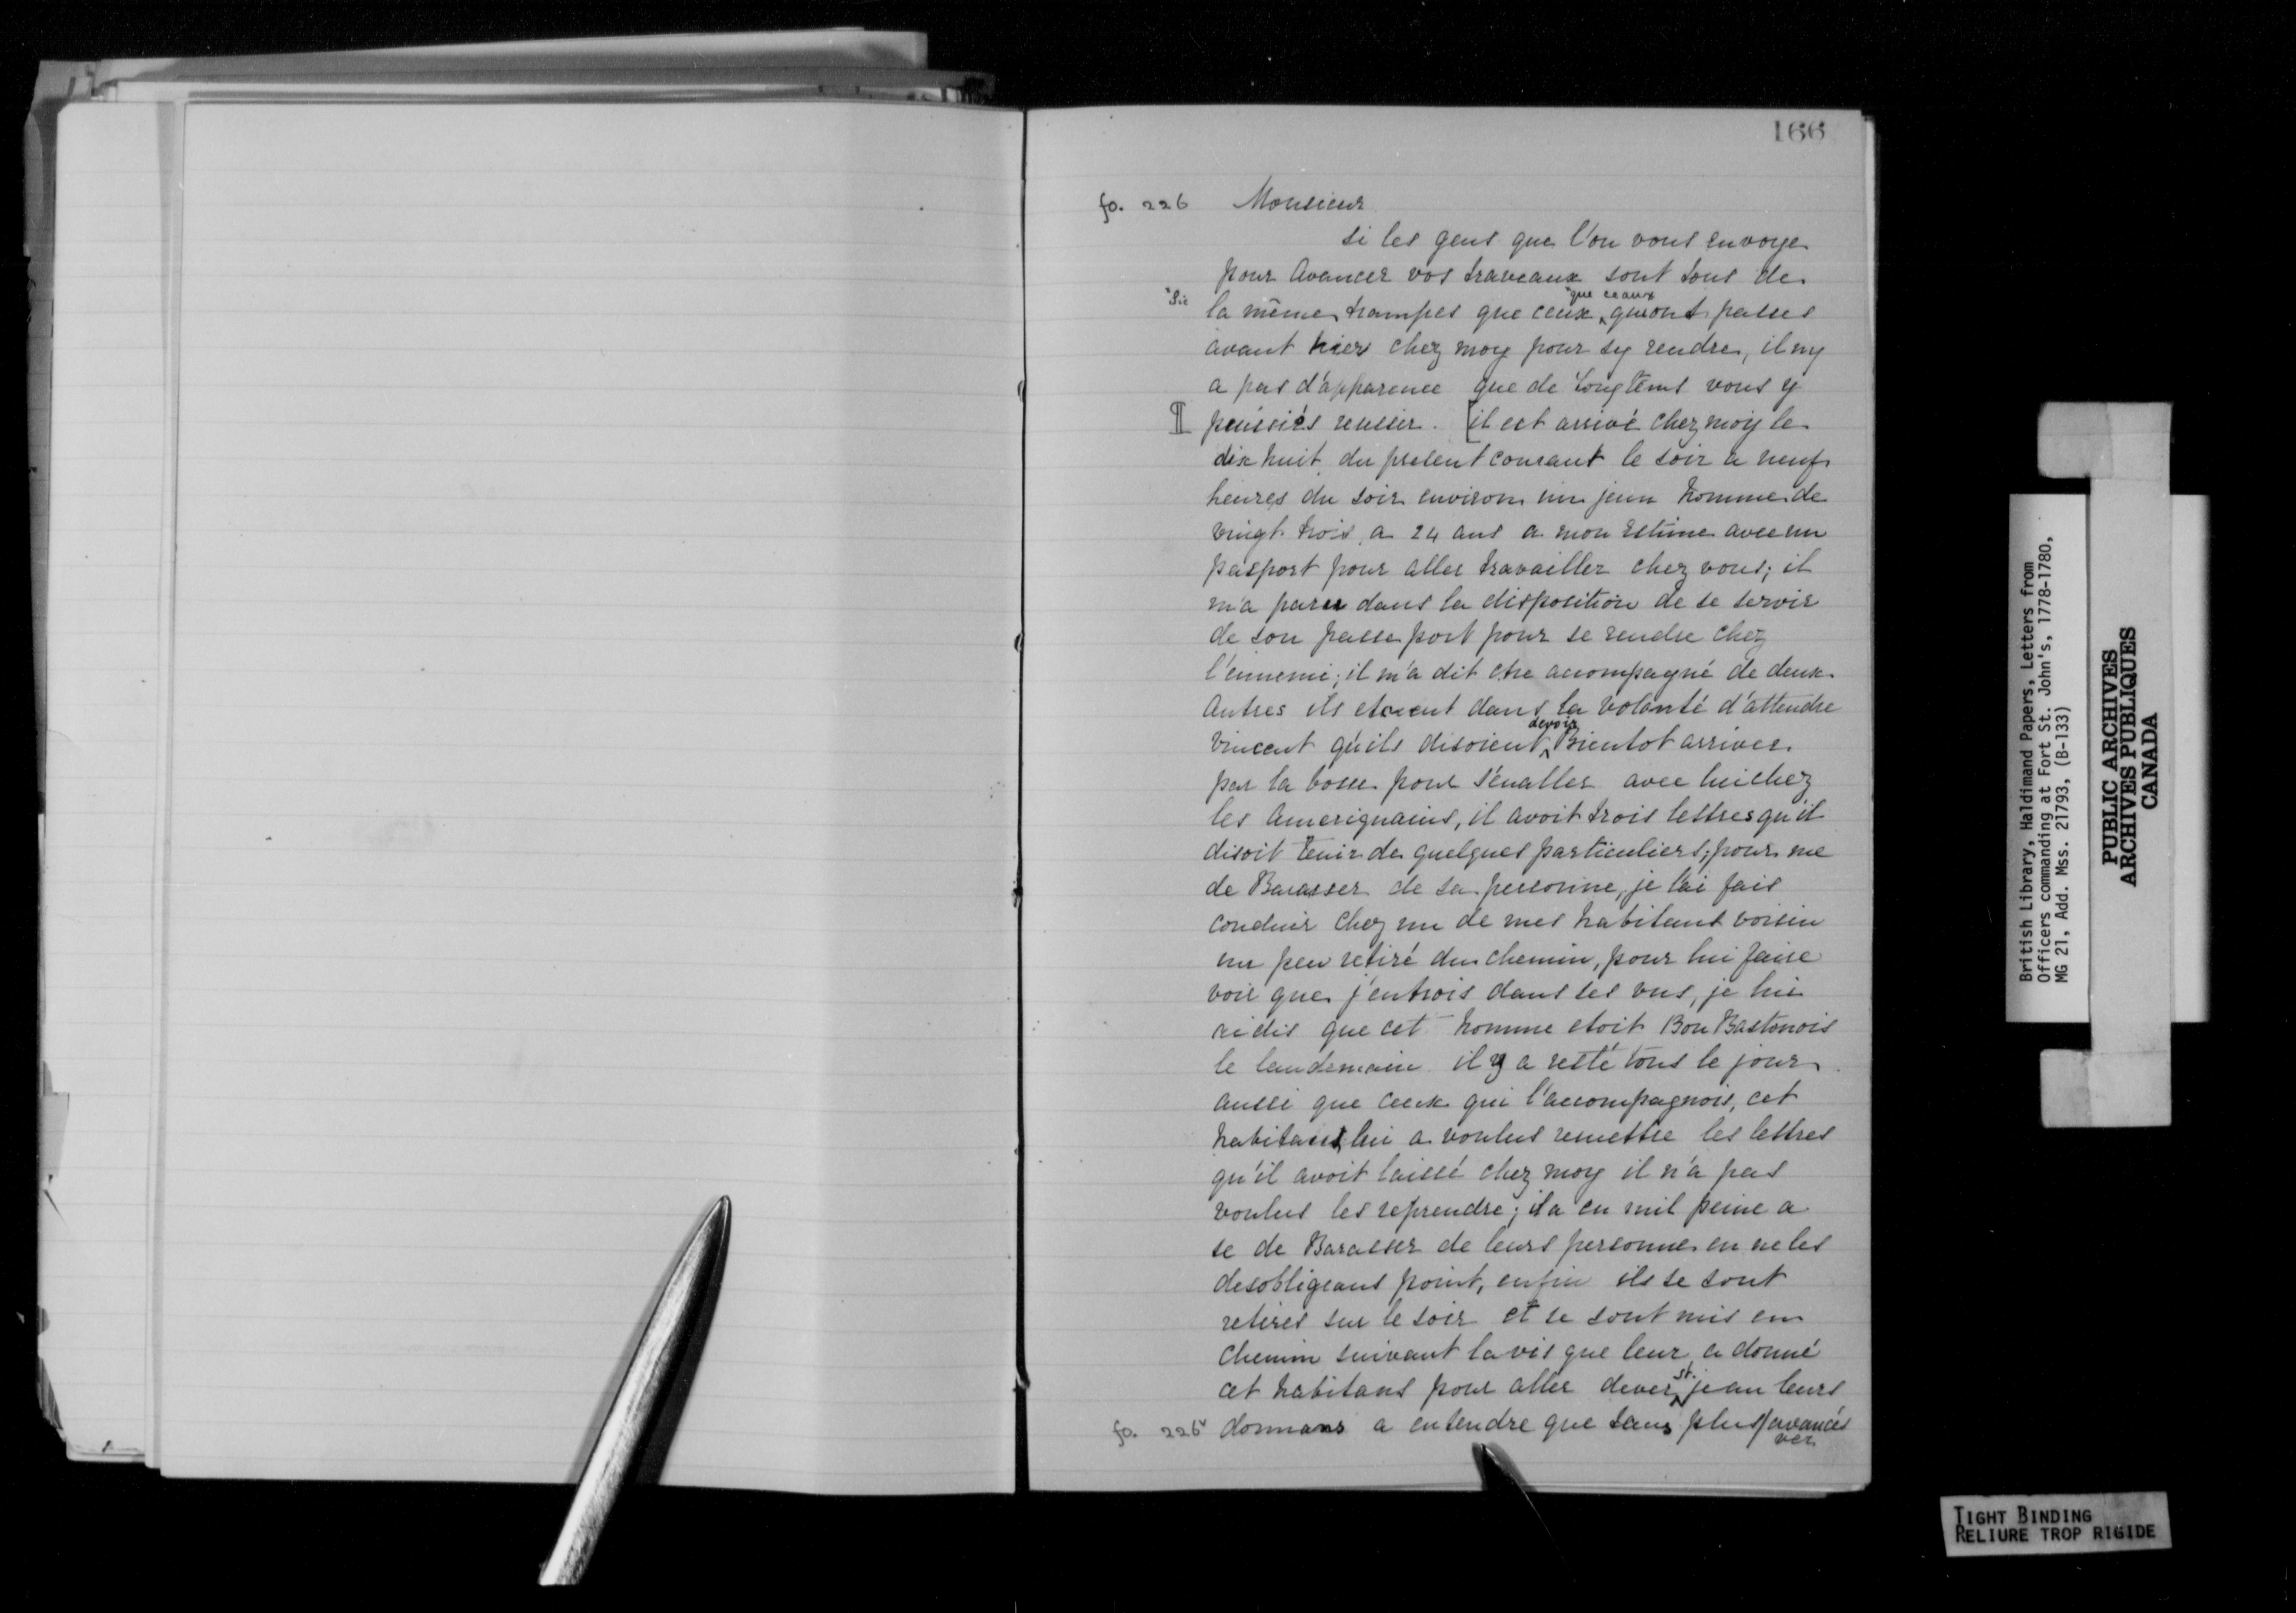 166
fo. 226 Monsieur
si les gens que l'on vous envoye
pour avancer vos traveaux sont tous de
*Sic la même trampes que ceux *que ceaux qui ont passes
avant hier chez moy pour sy rendre, il ny
a pas d'apparence que de longtems vous y
puissiés reussir. [il est arrivé chez moy le
dix huit du present courant le soir a neuf
heures du soir environ un jeun homme de
vingt trois a 24 ans a mon estime avec un
pasport pour aller travailler chez vous; il
m'a paru dans la disposition de se servir
de son passe port pour se rendre chez
l'ennemie; il m'a dit etre accompagné de deux
autres ils etoient dans la volonté d'attendre
Vincent qu'ils disoient devoir Bientot arriver
par la bosse pour s'enaller avec lui chez
les Ameriquains, il avoit trois lettres qu'il
disoit tenir de quelques particuliers; pour me
de Barasser de sa personne, je l'ai fais
conduir chez un de mes habitant voisin
un peu retiré du chemin, pour lui faire
voir que j'entrois dans ses vus, je lui
ai dis que cet homme etoit Bon Bastonois
le landemain il y a resté tous le jour
aussi que ceux qui l'accompagnois, cet
habitans lui a voulus remettre les lettres
qu'il avoit laissé chez moy il n'a pas
voulus les reprendre; il a eu mil peine a
se de Barasser de leurs personne en ne les
desobligeans point, enfin ils se sont
retirés sur le soir et se sont mis en
chemin suivant lavis que leur a donné
cet habitans pour aller dever St. jean leurs
fo. 226v donnans a entendre que sans plus/avancés
ver
British Library, Haldimand Papers, Letters from
Officers commanding at Fort St. John's, 1778-1780,
MG 21, Add. Mss. 21793, (B-133)
PUBLIC ARCHIVES
ARCHIVES PUBLIQUES
CANADA
TIGHT BINDING
RELIURE TROP RIGIDE